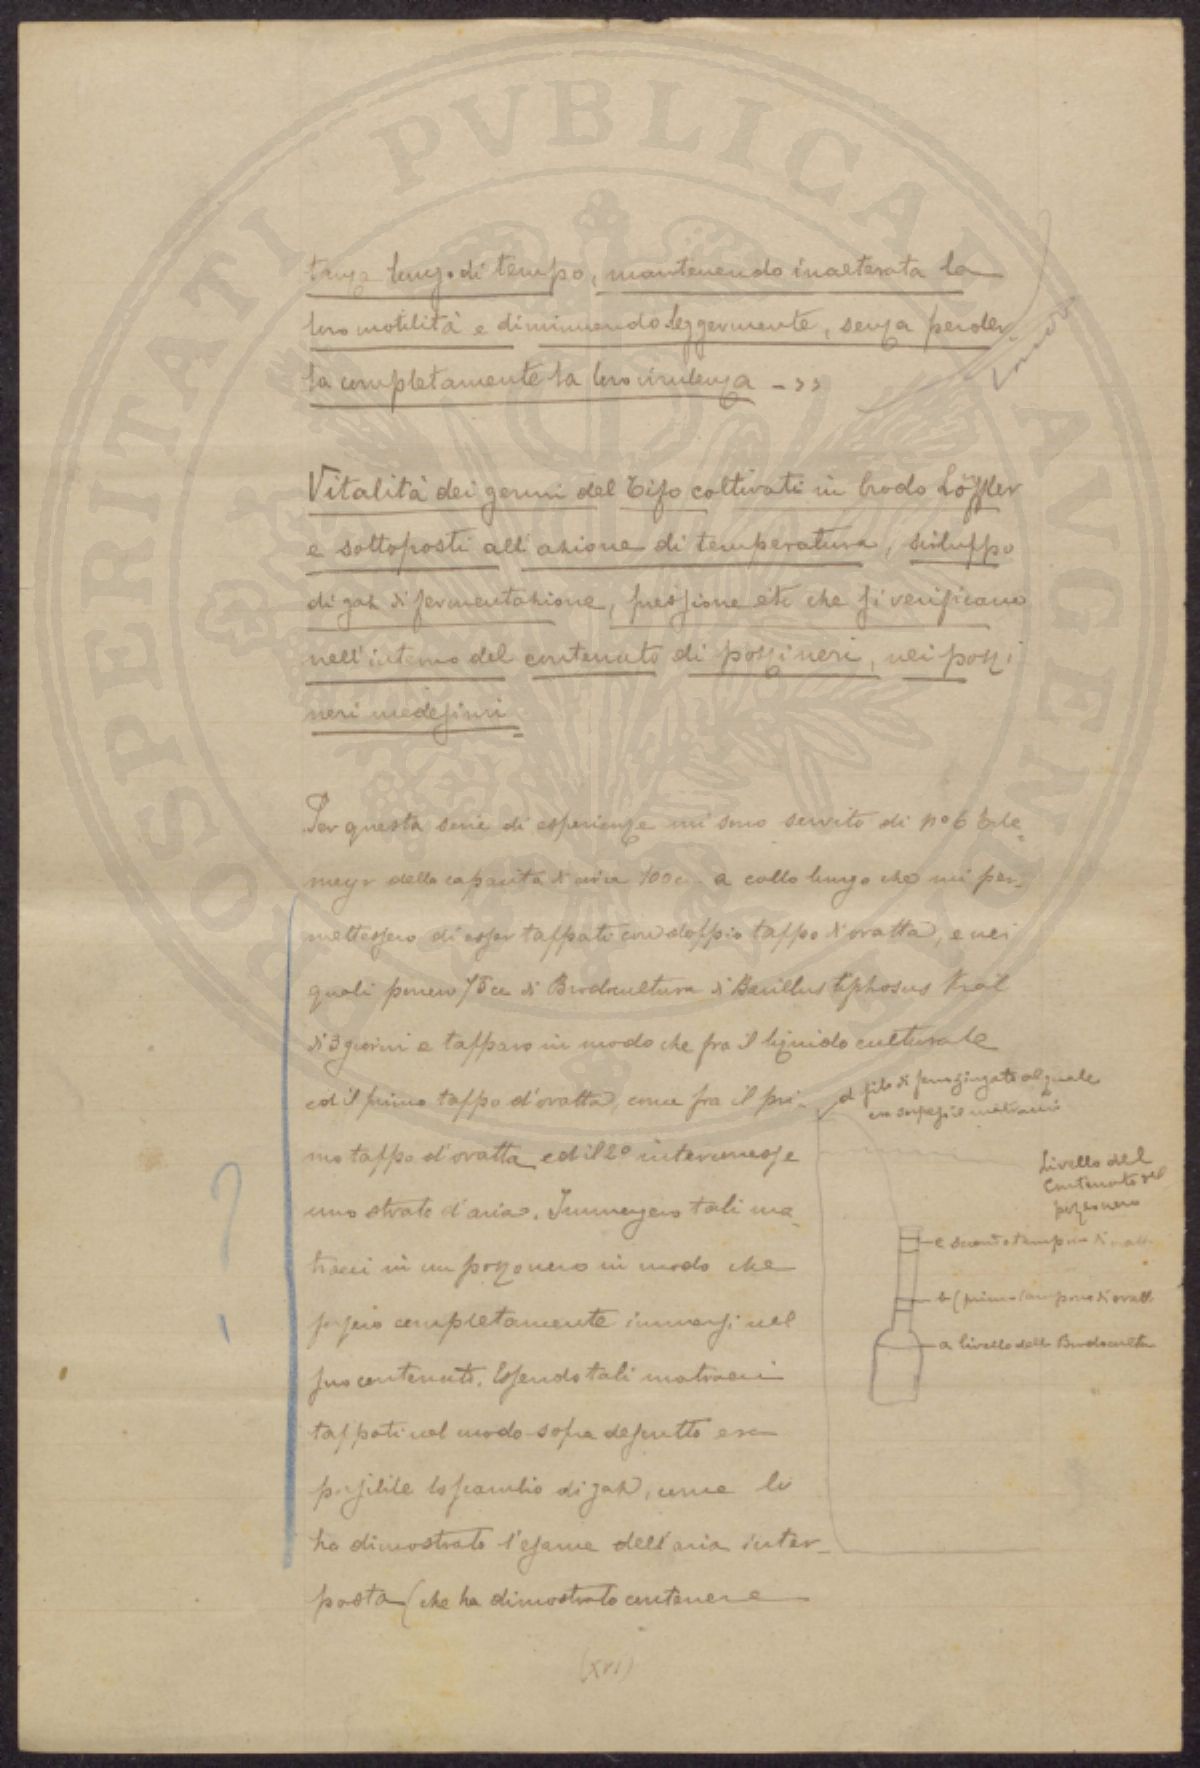 lungo di tempo, mantenendo inalterata la
loro motilità e diminuendo leggermente, senza perder
la completamente la loro virulenza – »
Vitalità dei germi del Tifo coltivati in brodo Löffler
e sottoposti all'azione di temperatura, sviluppo
di gaz di fermentazione, pressione etc che si verificano
nell'interno del contenuto di pozzi neri, nei pozzi
neri medesimi
Per questa serie di esperienze mi sono servito di n° 6 Erle
meyr della capacità di circa 100cc a collo lungo che mi per-
mettessero di esser tappati con doppio tappo d'ovatta, e nei
quali ponevo 75cc di Brodocultura di Bacillus tiphosus Kral
di 3 giorni e tappavo in modo che fra il liquido culturale
ed il primo tappo d'ovatta, come fra il pri-
mo tappo d'ovatta ed il 2° intervenesse
uno strato d'aria. Immergevo tali ma
tracci in un pozzo nero in modo che
fossero completamente immersi nel
suo contenuto. Essendo tali matracci
tappati nel modo sopra descritto era
possibile lo scambio di gaz, come lo
ha dimostrato l'esame dell'aria inter-
posta (che ha dimostrato contenere
d filo di ferro zingato al quale
era sospeso il matraccio
Livello del
Contenuto del
pozzo nero
c secondo tampone di
b (primo tampone di ovatt
a livello della Brodocultu
?
(XVI)
PROSPERITATI PVBLICAE AVGENDAE